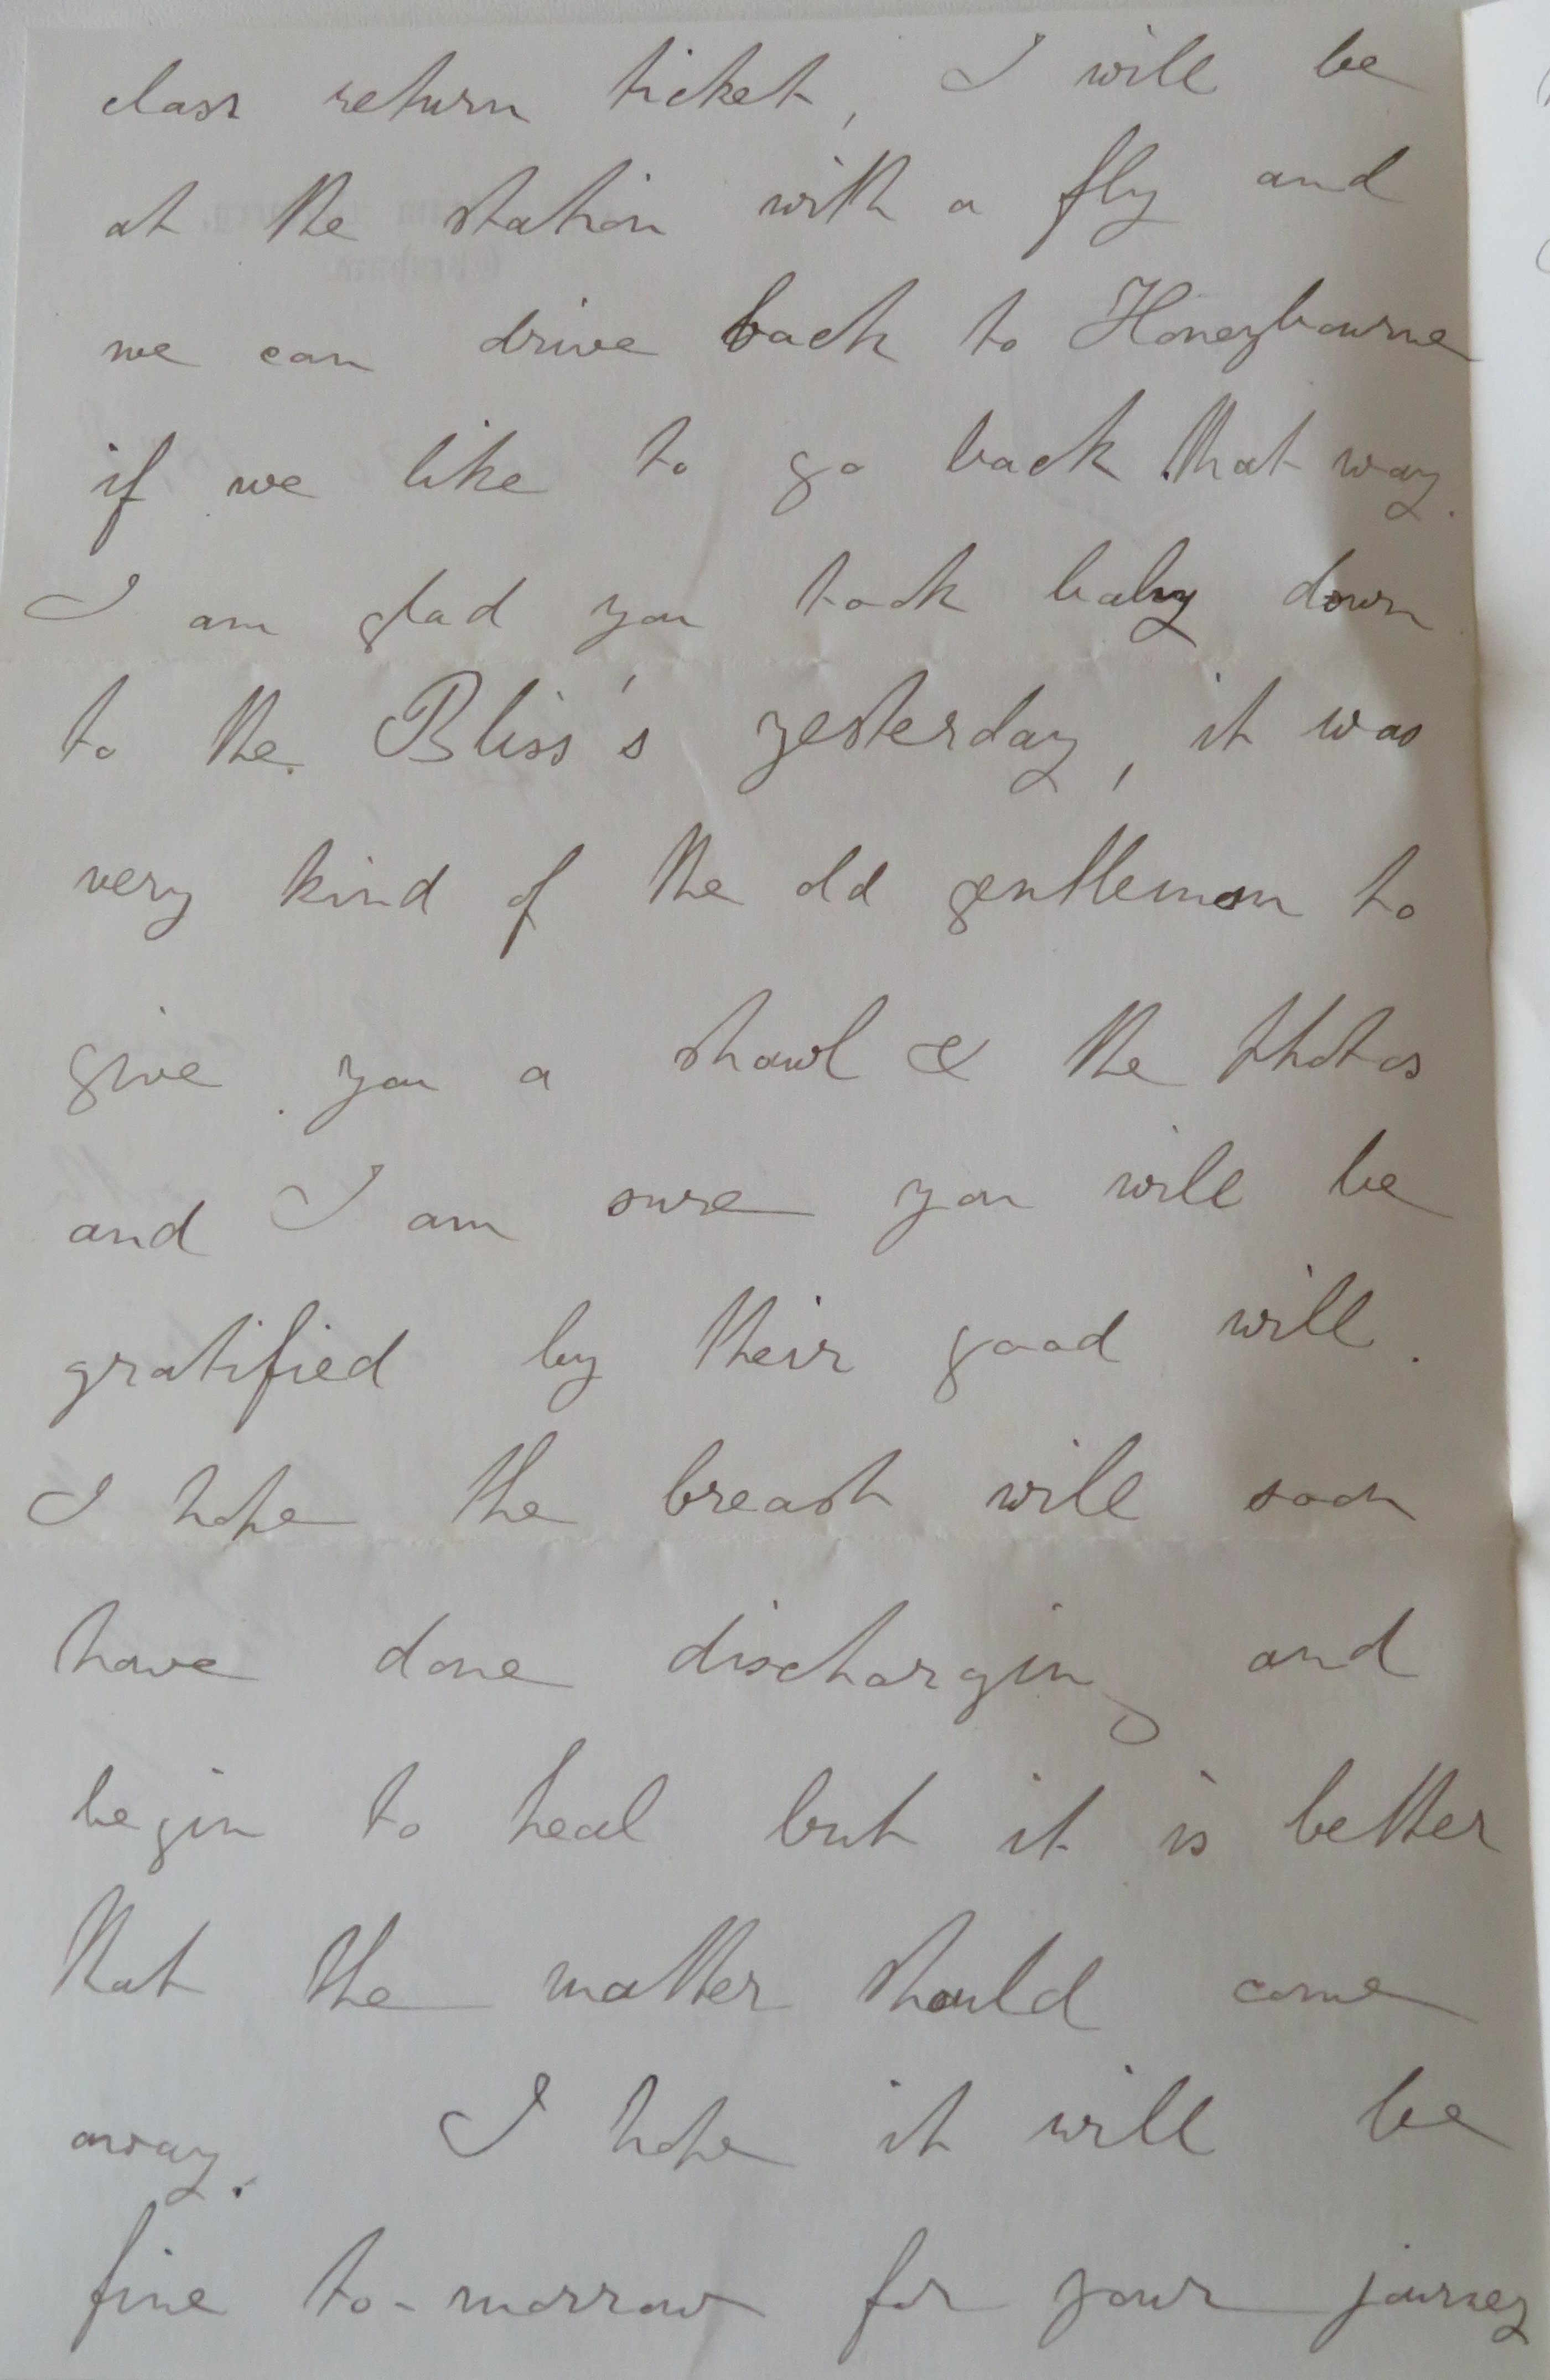 class return ticket, I will be
at the station with a fly and
we can drive back to Honeybourne
if we like to go back that way.
I am glad you took baby down
to the Bliss's yesterday, it was
very kind of the old gentleman to
give you a shawl & the photos
and I am sure you will be
gratified by their good will.
I hope the breast will soon
have done discharging and
begin to heal but it is better
that the matter should come
away. I hope it will be
fine to-morrow for your journey